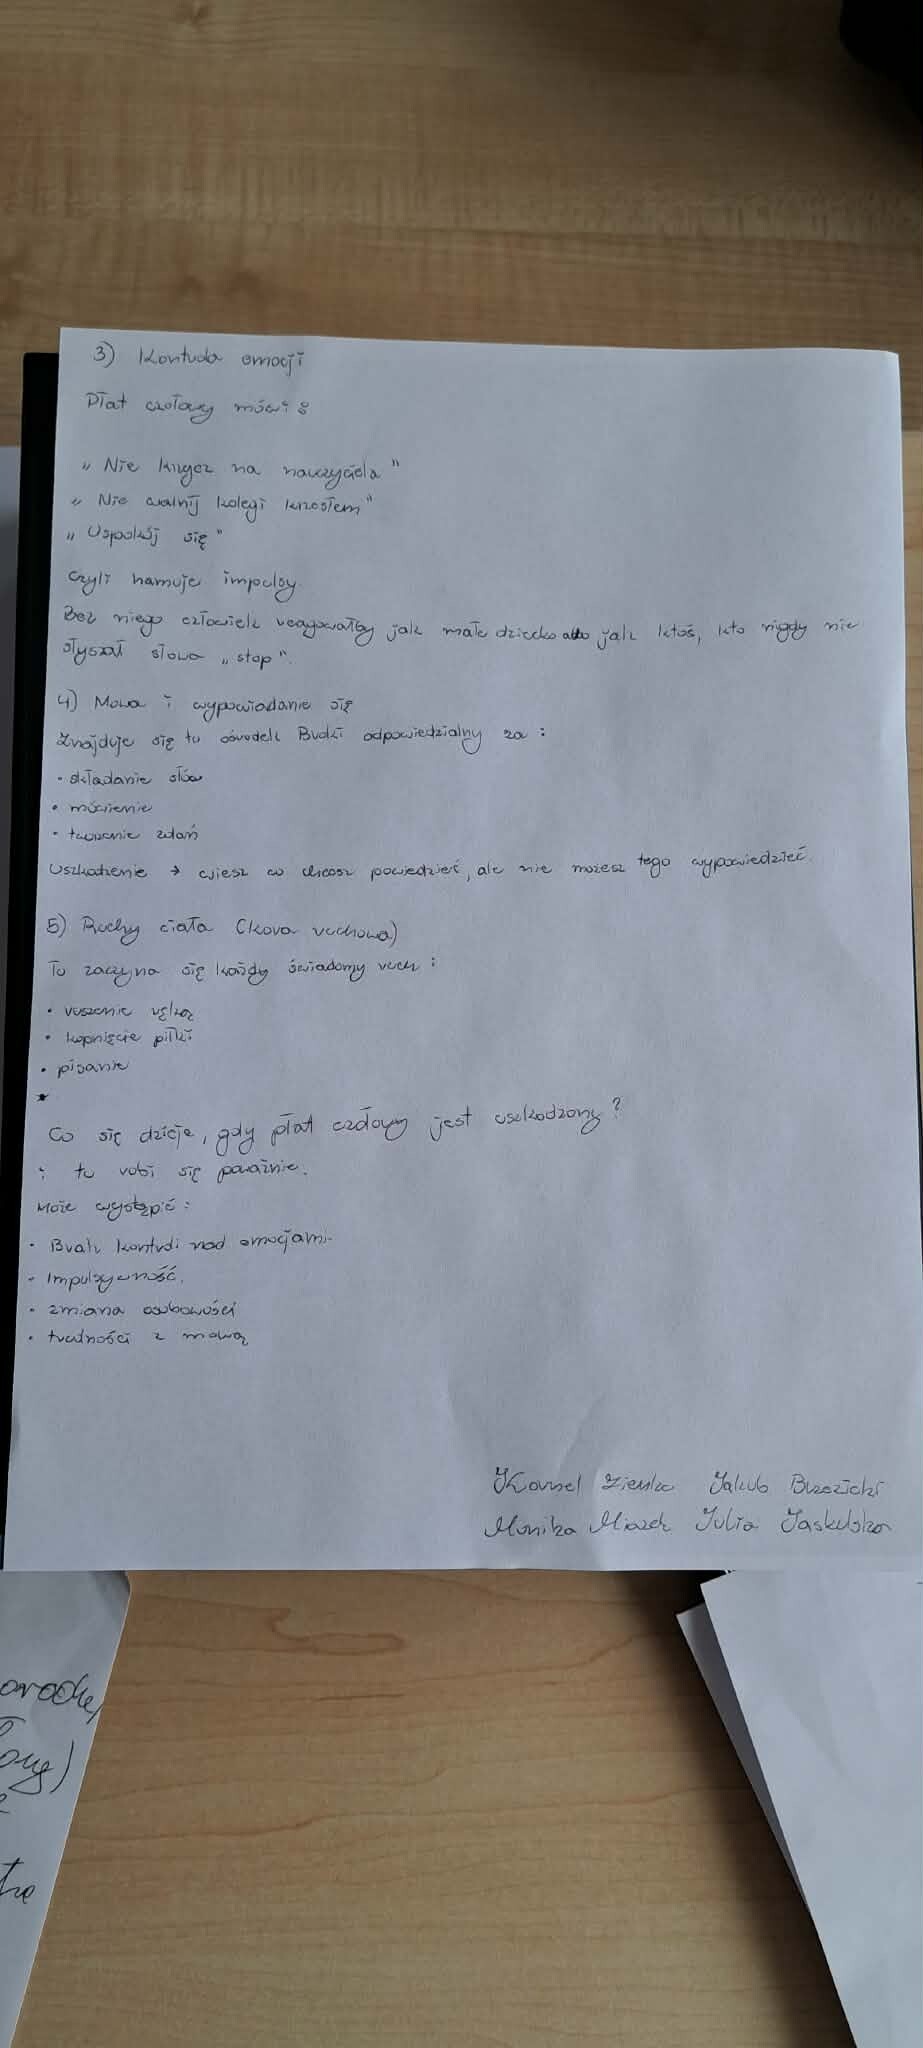 3) Kontrola emocji
Płat czołowy mówi:
„Nie krzycz na nauczyciela"
„Nie walnij kolegi krzesłem"
„Uspokój się"
Czyli hamuje impulsy.
Bez niego człowiek reagowałby jak małe dziecko albo jak ktoś, kto nigdy nie
słyszał słowa „stop".
4) Mowa i wypowiadanie się
Znajduje się tu ośrodek Brocki odpowiedzialny za:
• składanie słów
• mówienie
• tworzenie zdań
Uszkodzenie → wiesz co chcesz powiedzieć, ale nie możesz tego wypowiedzieć.
5) Ruchy ciała (kora ruchowa)
Tu zaczyna się każdy świadomy ruch:
• ruszenie ręką
• kopnięcie piłki
• pisanie
•
Co się dzieje, gdy płat czołowy jest uszkodzony?
i tu robi się poważnie.
Może wystąpić:
• Brak kontroli nad emocjami.
• Impulsywność.
• zmiana osobowości
• trudności z mową
Kornel Jakub Brzozicki
Monika Miazek Julia Jaskulska